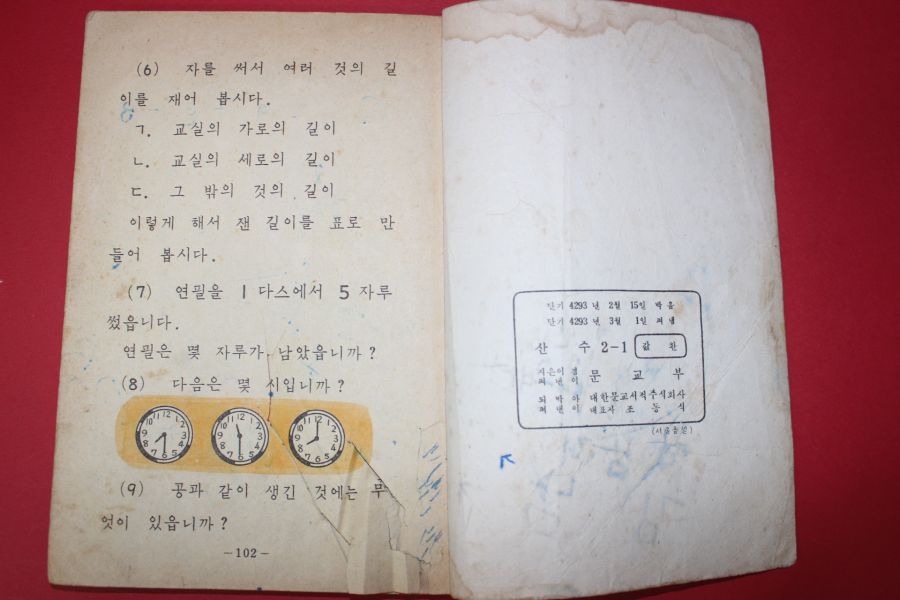 (6) 자를 써서 여러 것의 길
이를 재어 봅시다.
ㄱ. 교실의 가로의 길이
ㄴ. 교실의 세로의 길이
ㄷ. 그 밖의 것의 길이
이렇게 해서 잰 길이를 표로 만
들어 봅시다.
(7) 연필을 1 다스에서 5 자루
썼읍니다.
연필은 몇 자루가 남았읍니까?
(8) 다음은 몇 시입니까?
(9) 공과 같이 생긴 것에는 무
엇이 있읍니까?
-102-
단기 4293 년 2월 15일 박음
단기 4293 년 3월 1일 펴냄
산 수 2-1 값 환
지은이겸
펴낸이 문교부
되박아 대한문교서적주식회사
펴낸이 대표자 조동식